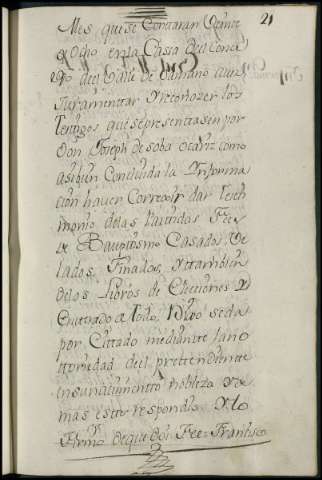 21
Mes que se Contaran Veinte
y Ocho en la Cassa del Conce
xo del Valle de
Juramentar y reconozer los
testigos que se presentasen por
Don Joseph de
asibien Concluida la Informa
cion haver Correxir dar testi
monio de las Partidas Fee
de Bauptismo Casados Ve
lados Finados, y tambien
de los Libros de Elecciones y
Enterado a todo, Dixo se da
por Cittado mediante la no
toriedad del prettendiente
en su nacimiento nobleza y de
mas esto respondio y lo
Firmo de que doi Fee= Francisco